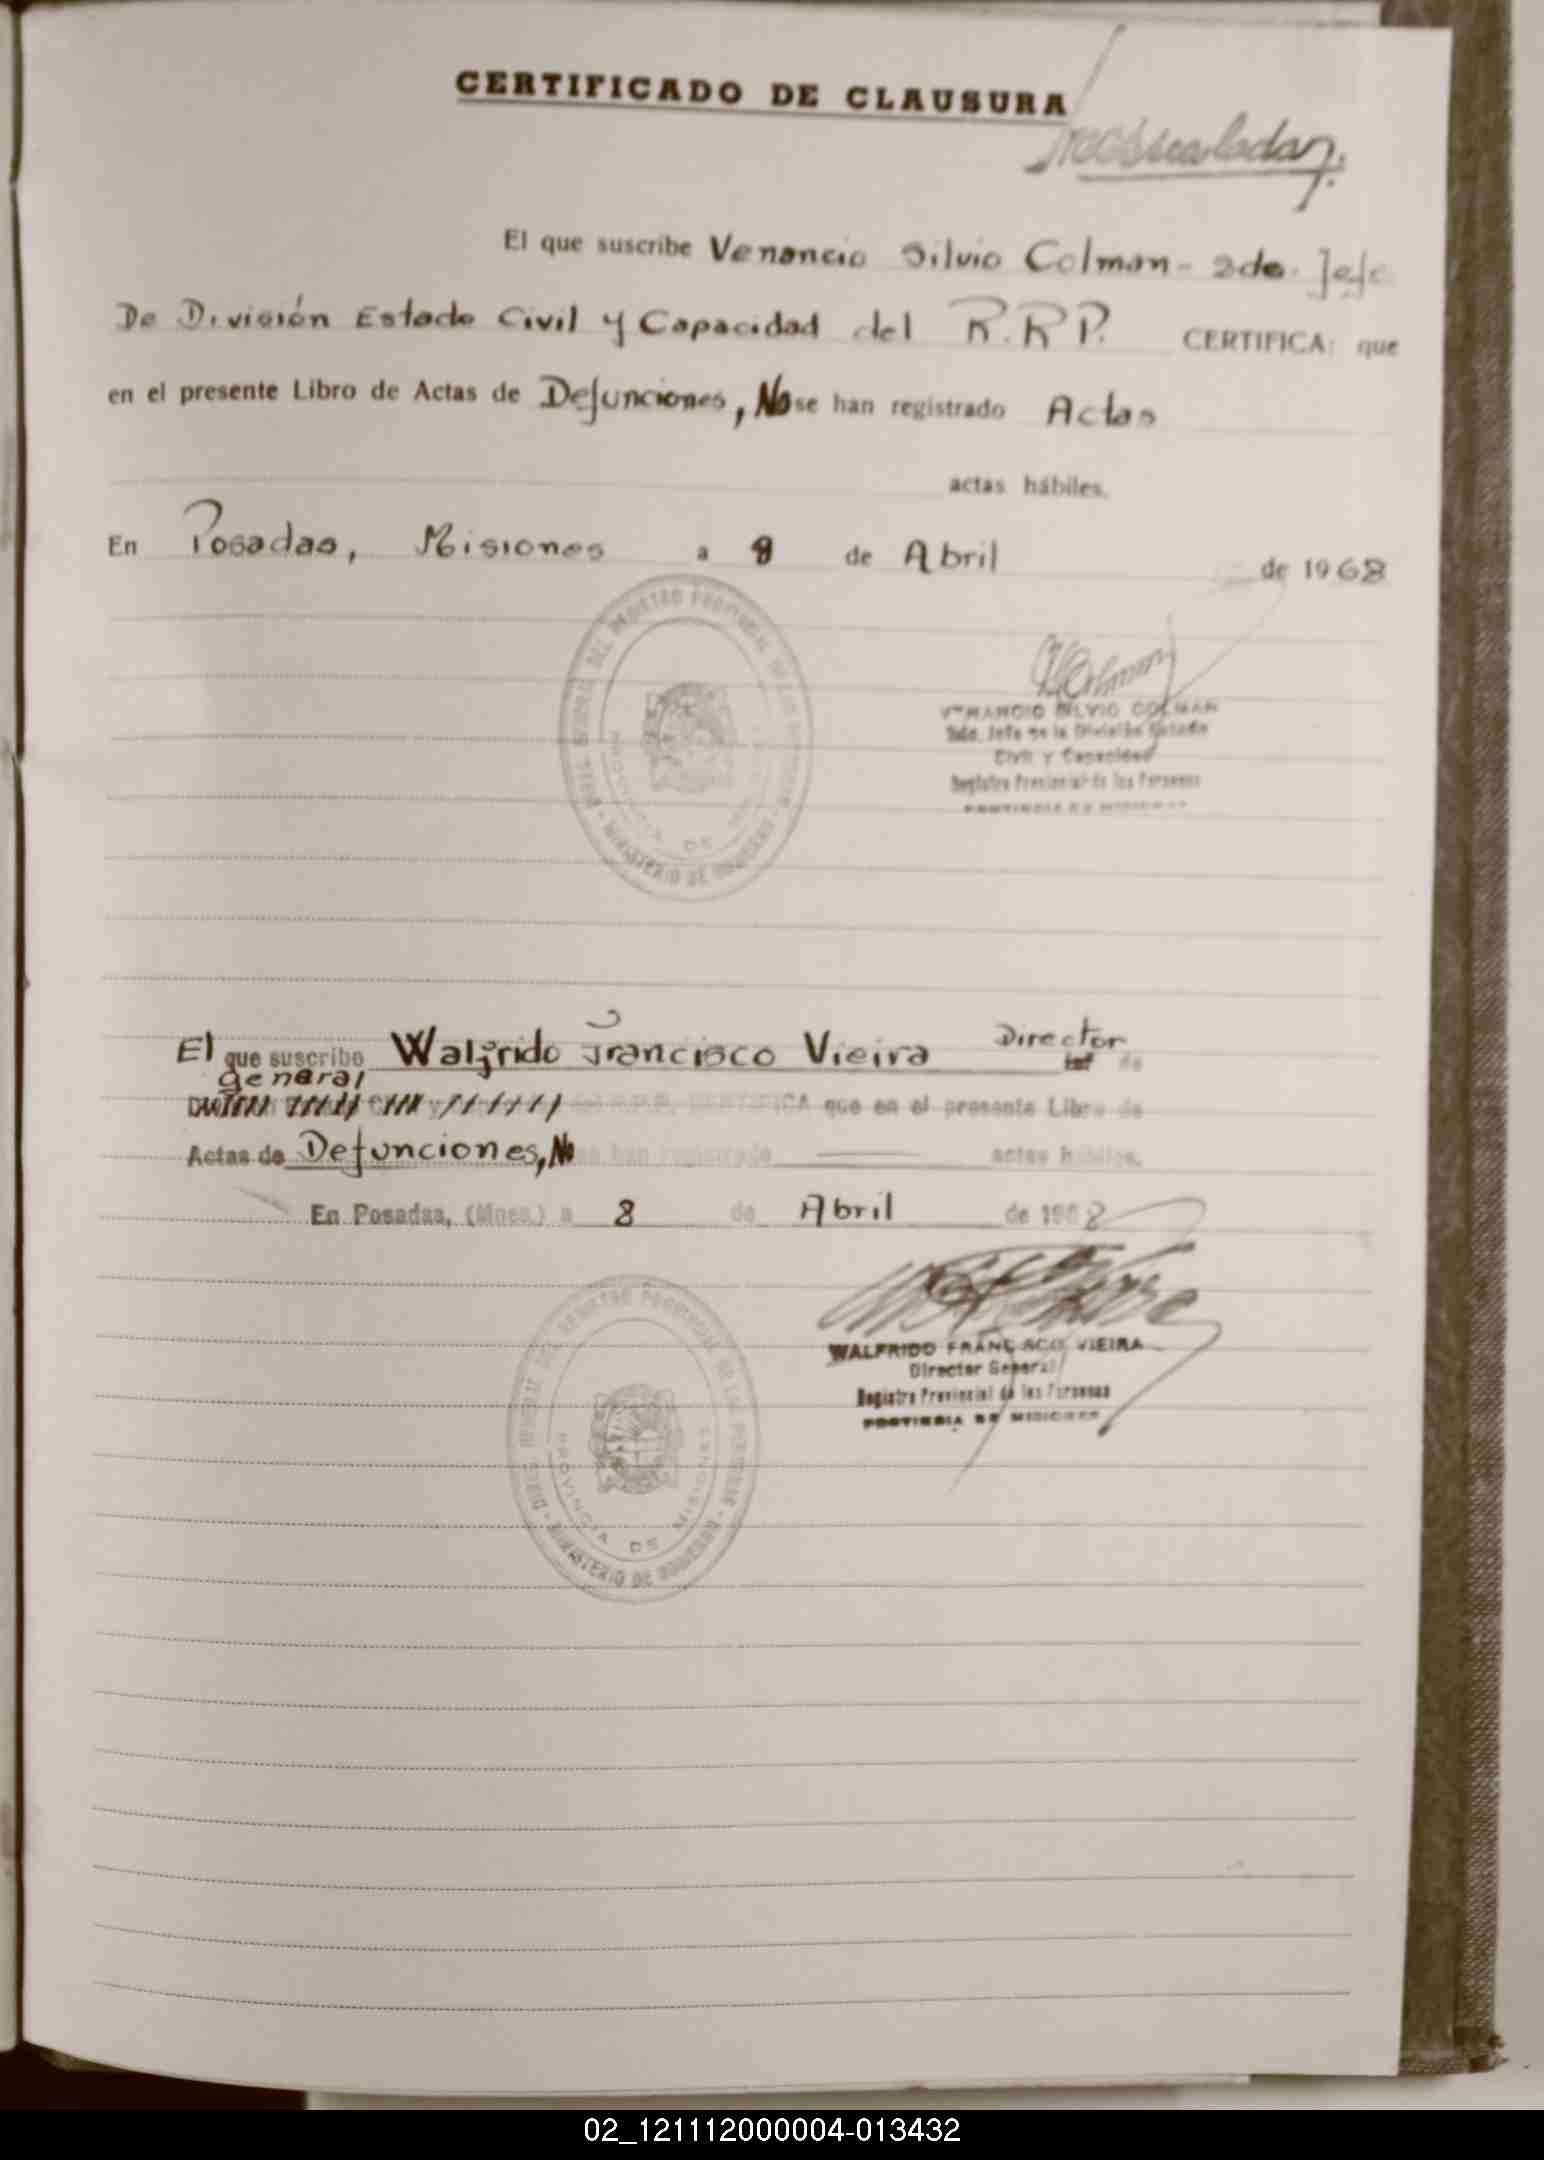 CERTIFICADO DE CLAUSURA
El que suscribe Venancio Silvio Colman - 2do. Jefe
De División Estado Civil y Capacidad del R.R.P. CERTIFICA: que
en el presente Libro de Actas de Defunciones, No se han registrado Actas
actas hábiles.
En Posadas, Misiones a 8 de Abril de 1968
VENANCIO SILVIO COLMAN
2do. Jefe de la División Estado
Civil y Capacidad
Registro Provincial de las Personas
PROVINCIA DE MISIONES
El que suscribe Walfrido Francisco Vieira Director
general
CERTIFICA que en el presente Libro de
Actas de Defunciones, No se han registrado actas hábiles.
En Posadas, (Mnes.) a 8 de Abril de 1968
WALFRIDO FRANCISCO VIEIRA
Director General
Registro Provincial de las Personas
PROVINCIA DE MISIONES
PROVINCIA DE MISIONES
02_121112000004-013432